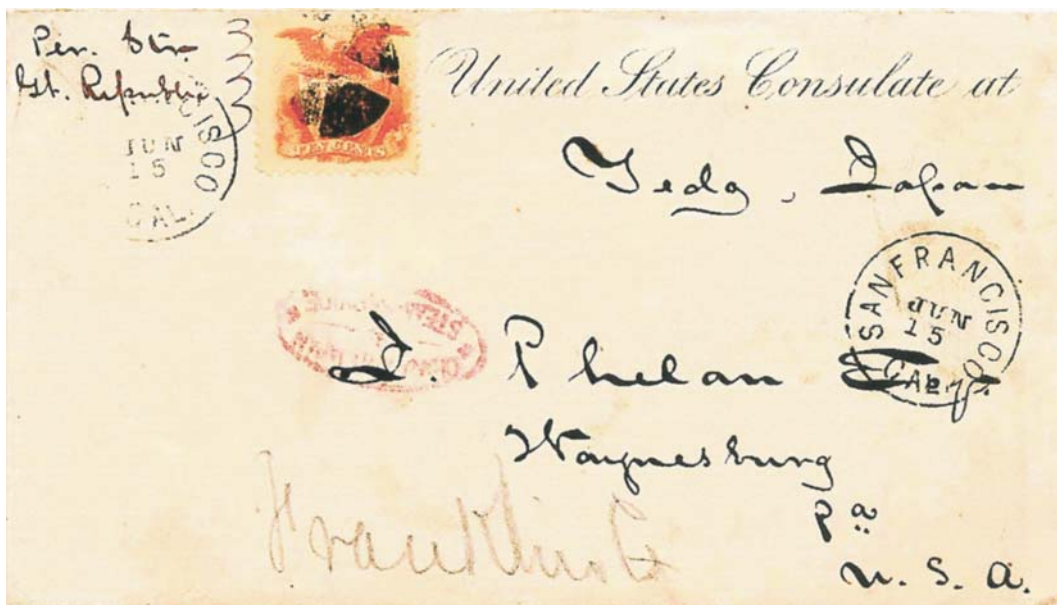 Per. Str.
Gt. Republic
CISCO
JUN
15
CAL.
TEN CENTS
United States Consulate at
Yedo, Japan
SAN FRANCISCO
JUN
15
CAL.
Phelan Esq.
Waynesburg
Pa
U. S. A.
Franklin Co